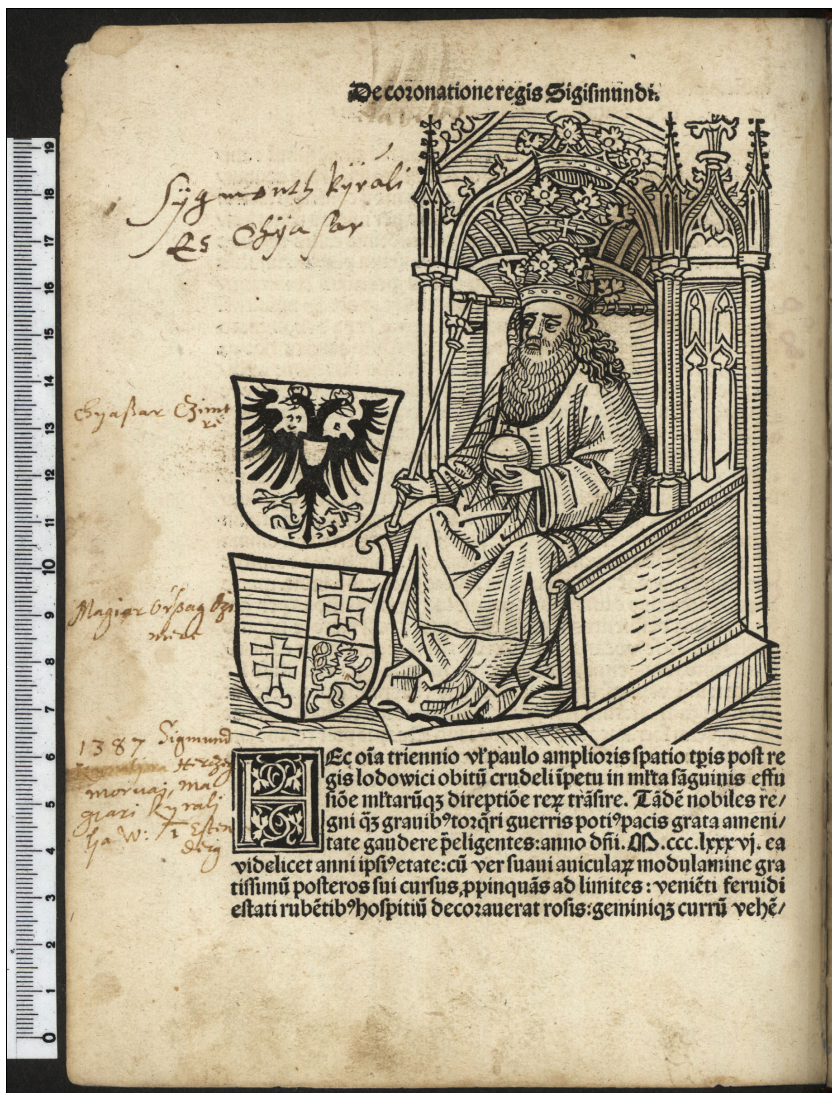 De coronatione regis Sigismundi.
Sÿgmonth kÿrali
Es Chÿasar
chyaßar Czimere
Magiar orßag Czi
mere
1387 Sigmund
Herczeg
moruaj, ma
giari kyralj
HEc oı̃a triennio vꝉ paulo amplioris spatio tp̲is post re
gis lodowici obitũ crudeli ı̃petu in ml̃ta sãguinis effu
siõe ml̃tarũqꝫ direptiõe rerꝝ trãsire. Tãdẽ nobiles re/
gni qꝫ grauibꝰ torq̃ri guerris potiꝰ pacis grata ameni/
tate gaudere p̃eligentes: anno dñi. M. ccc. lxxxvj. ea
videlicet anni ipsiꝰ etate: cũ ver suaui auiculaꝝ modulamine gra
tissimũ posteros sui cursus, ꝓpinquãs ad limites: veniẽti feruidi
estati rubẽtibꝰ hospitiũ decorauerat rosis: geminiqꝫ currũ vehẽ/
19
18
17
16
15
14
13
12
11
10
9
8
7
6
5
4
3
2
1
0